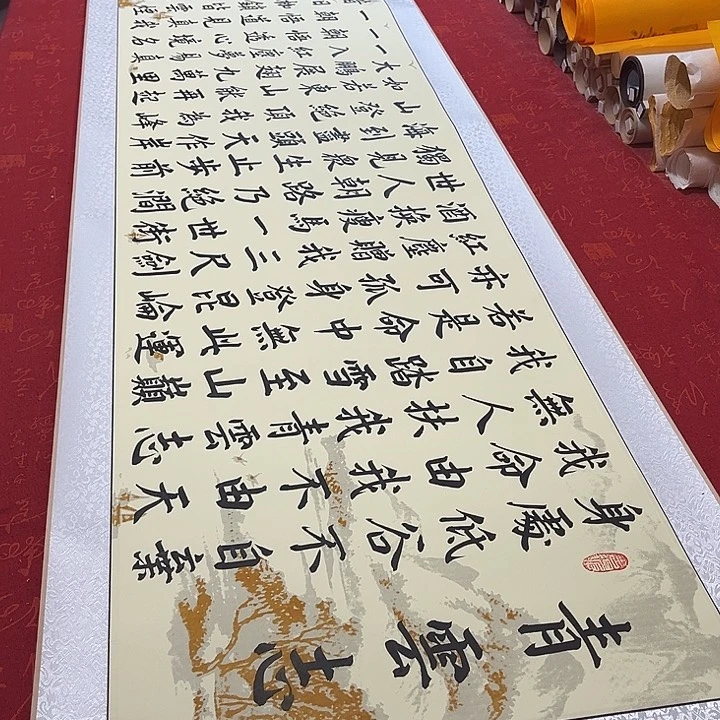 青雲志
身處低谷不自棄
我命由我不由天
無人扶我青雲志
我自踏雪至山巔
若是命中無此運
亦可孤身登昆崙
紅塵贈我三尺劍
酒換瘦馬一世
世人朝路乃絕澗
獨見眾生止步前
海到盡頭天作岸
山登絕頂我為峰
如若東山再起
大鵬展翅九萬里
一入紅塵夢易真
一朝悟心境名
一朝悟道見真我
昔日枷鎖皆雲煙